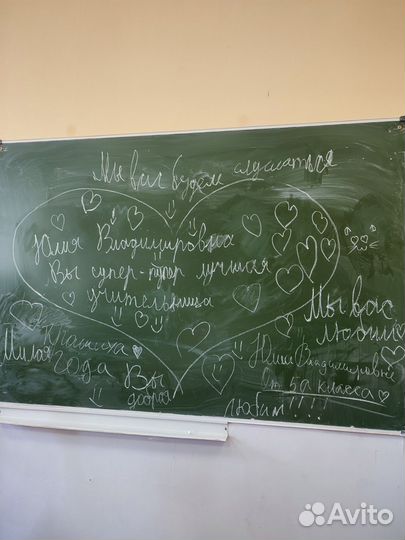 Мы вас будем слушаться
Юлия Владимировна
Вы супер-пупер лучшая
учительница
Мы вас
любим
Милая
Классуха
года
Вы
добрая
Юлия Владимировна
От 5а класса
любим!!!!
Avito